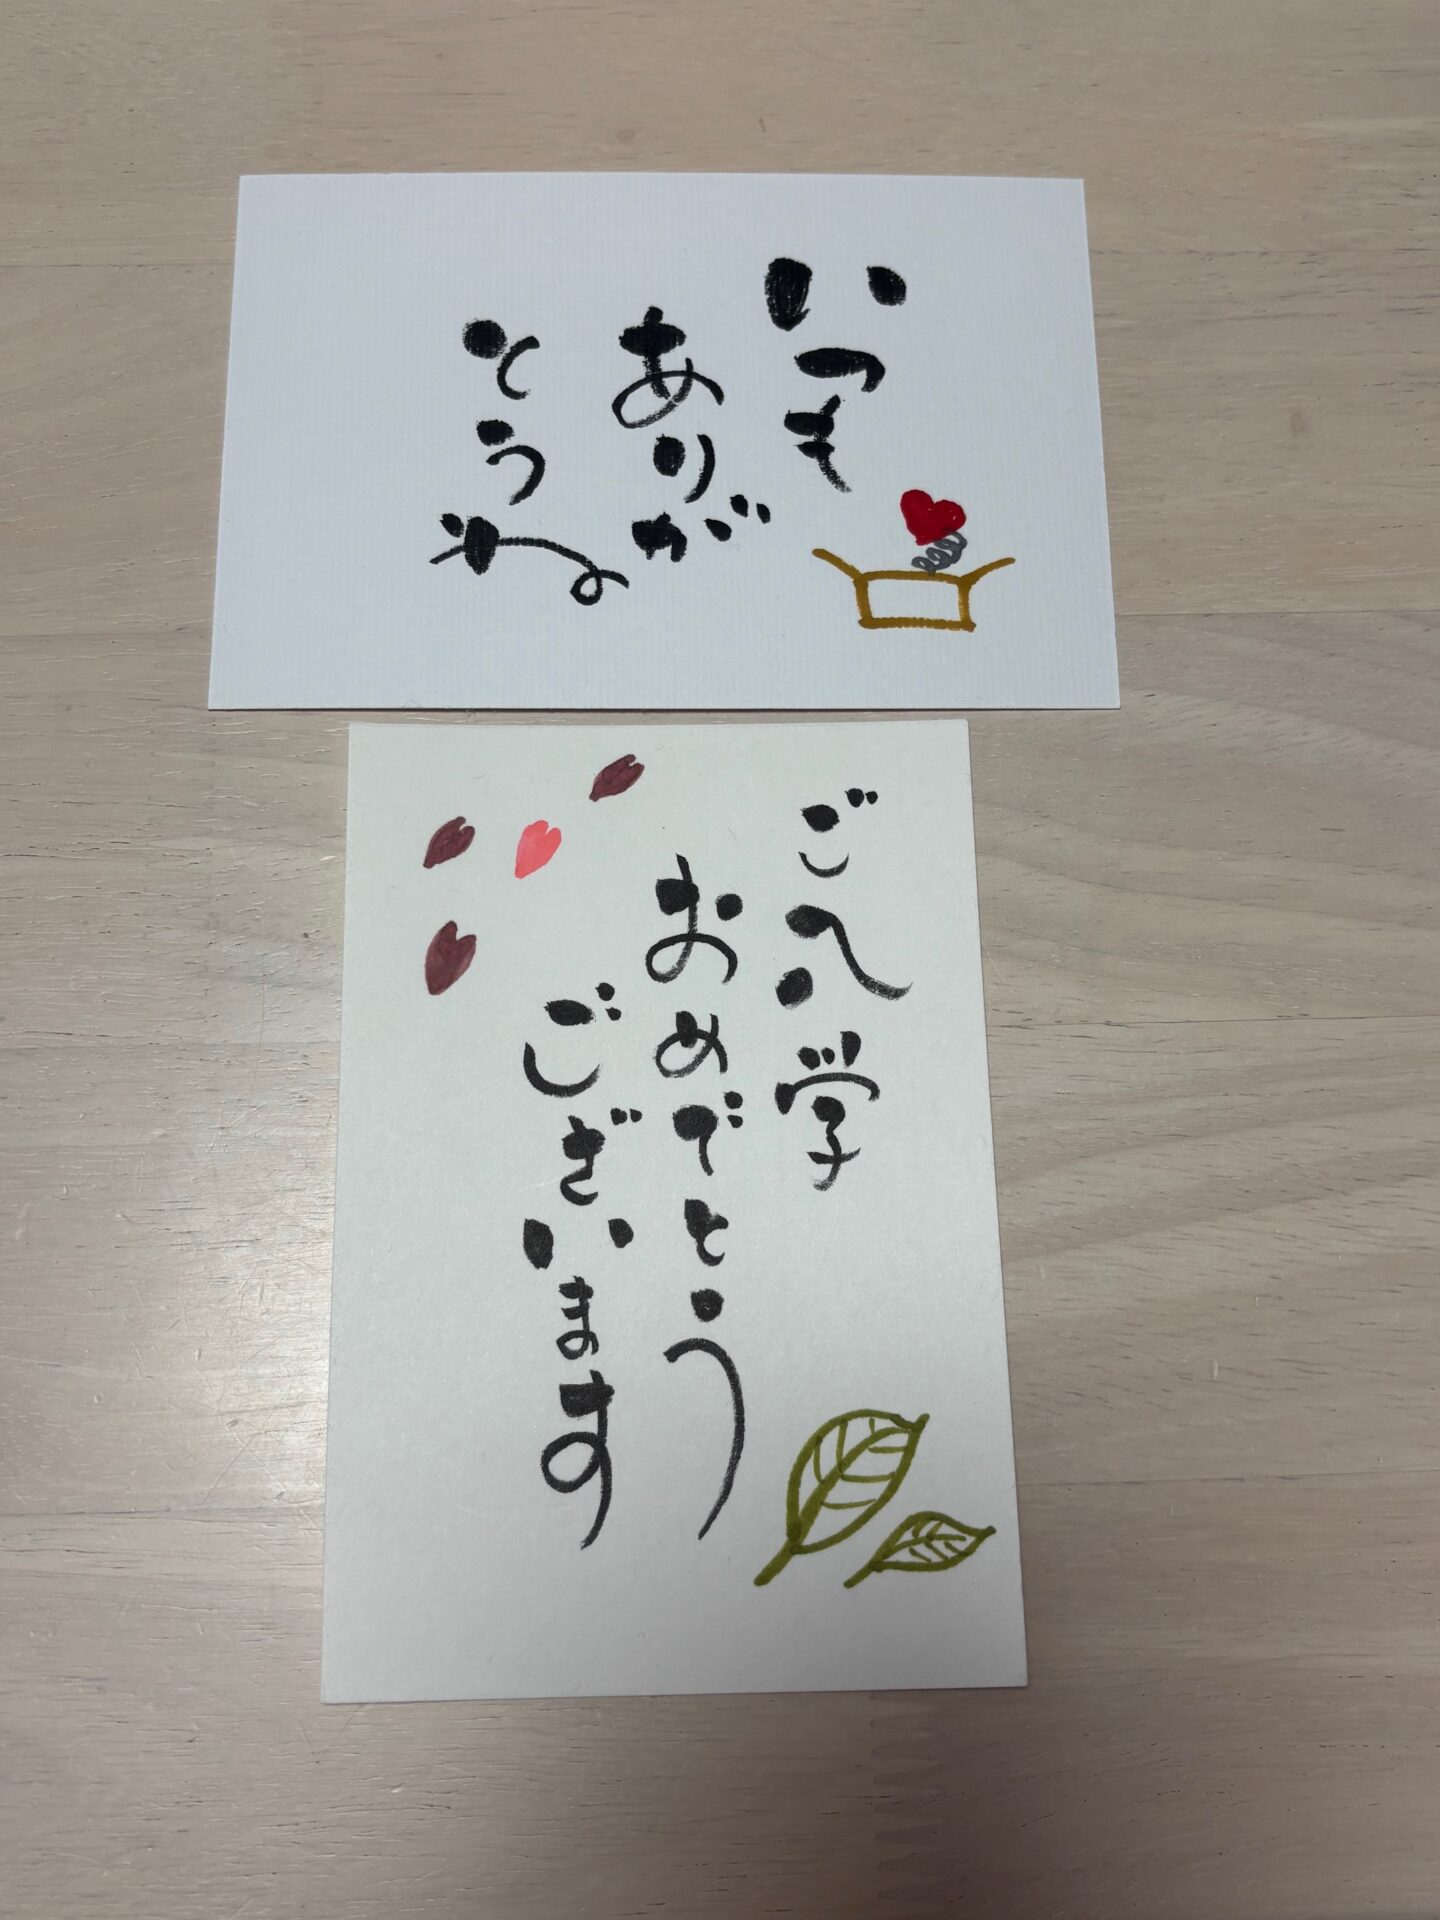 いつも
ありが
とうね
ご入学
おめでとう
ございます